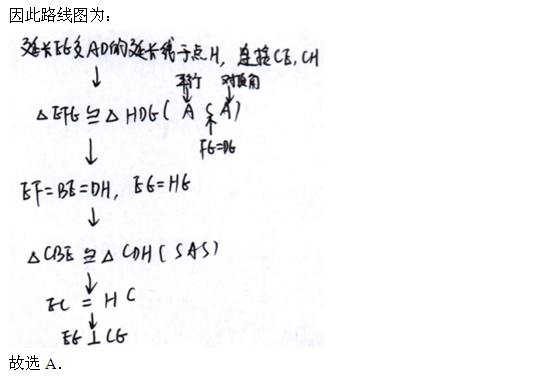 因此路线图为：
延长EG交AD的延长线于点H，连接CE，CH
平行 对顶角
△EFG≌△HDG（A S A）
FG=DG
EF=BE=DH，EG=HG
△CBE≌△CDH（SAS）
EC=HC
EG⊥CG
故选 A.